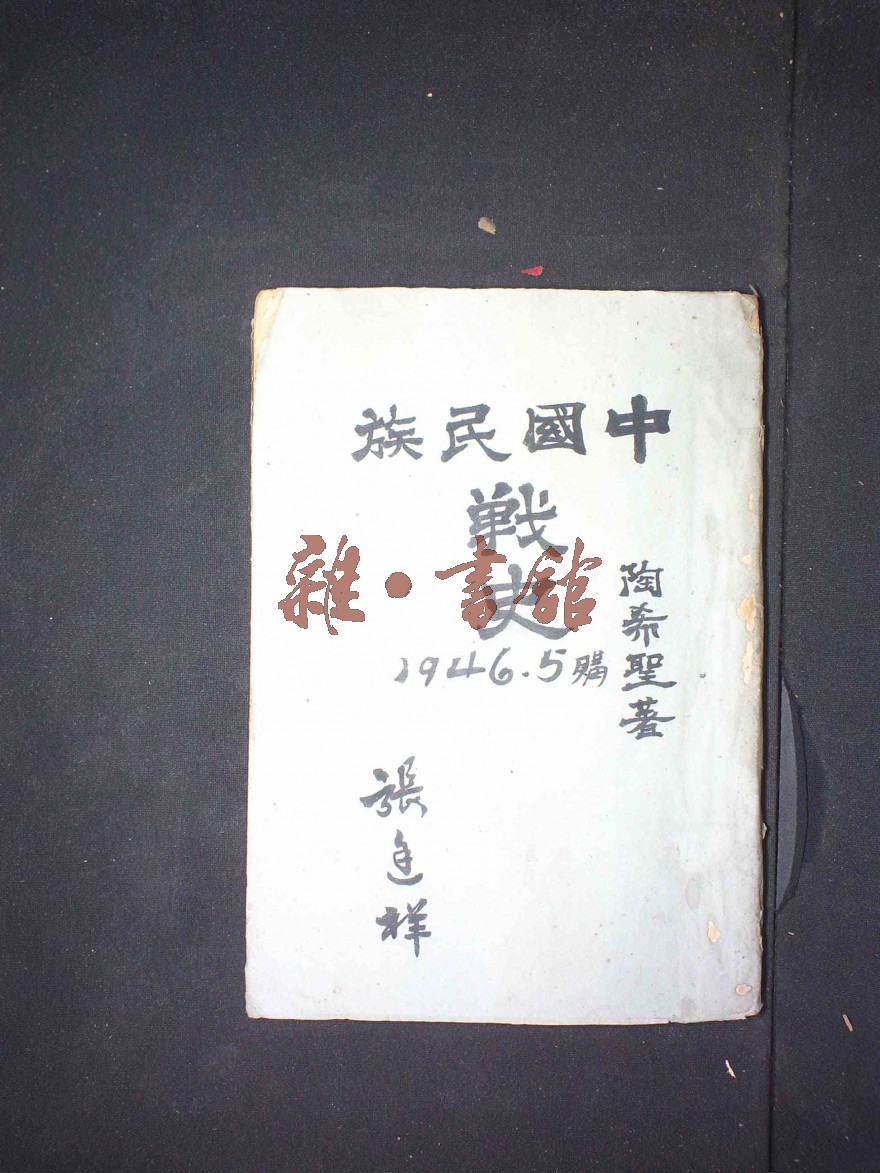 中國民族
戦史
陶希聖著
雜•書館
1946.5購
張 祥